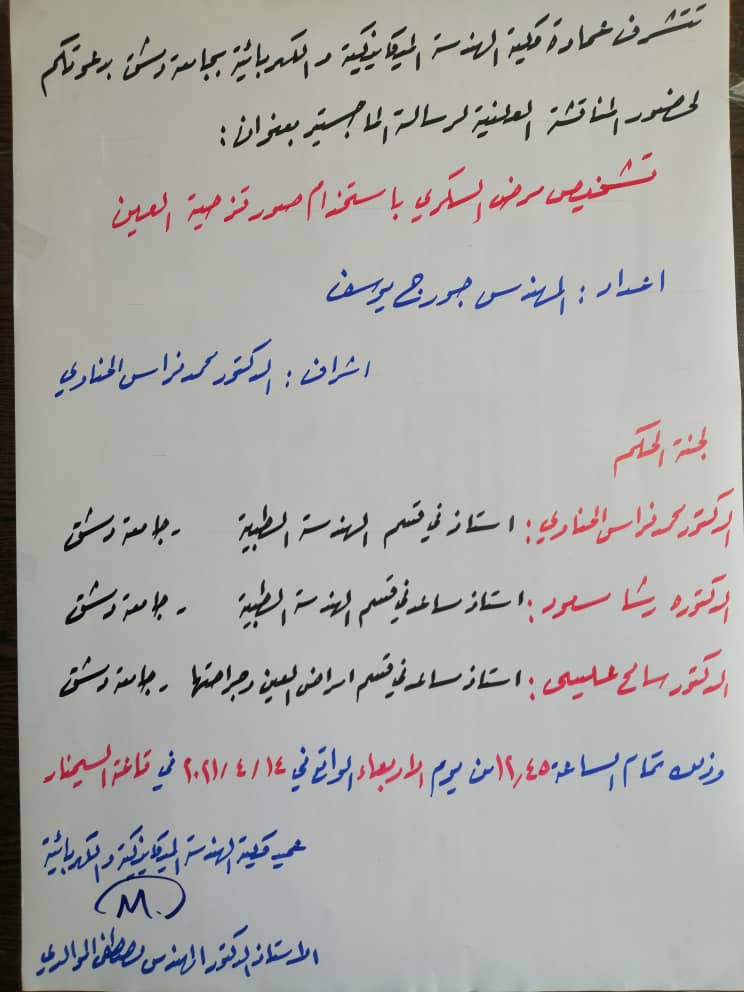 تتشرف عمادة كلية الهندسة الميكانيكية والكهربائية بجامعة دمشق بدعوتكم
لحضور المناقشة العلنية لرسالة الماجستير بعنوان :
تشخيص مرض السكري باستخدام صور قزحية العين
اعداد : المهندس جورج يوسف
اشراف : الدكتور محمد فراس الحناوي
لجنة الحكم
الدكتور محمد فراس الحناوي : استاذ في قسم الهندسة الطبية - جامعة دمشق
الدكتوره رشا سعود : استاذ مساعد في قسم الهندسة الطبية - جامعة دمشق
الدكتور سامح عليسى : استاذ مساعد في قسم امراض العين وجراحتها - جامعة دمشق
وذلك تمام الساعة ١٢,٤٥ من يوم الاربعاء الواقع في ١٤/٤/٢٠٢١ في قاعة السيمنار
عميد كلية الهندسة الميكانيكية والكهربائية
M.
الاستاذ الدكتور المهندس مصطفى الموالدي